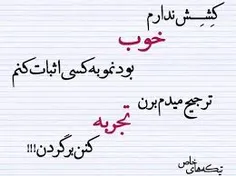 کشِــش ندارم
خوب
بودنمو به کسی اثبات کنم
ترجیح میدم برن
تجربه
کنن برگردن!!!
تیکه‌های خاص